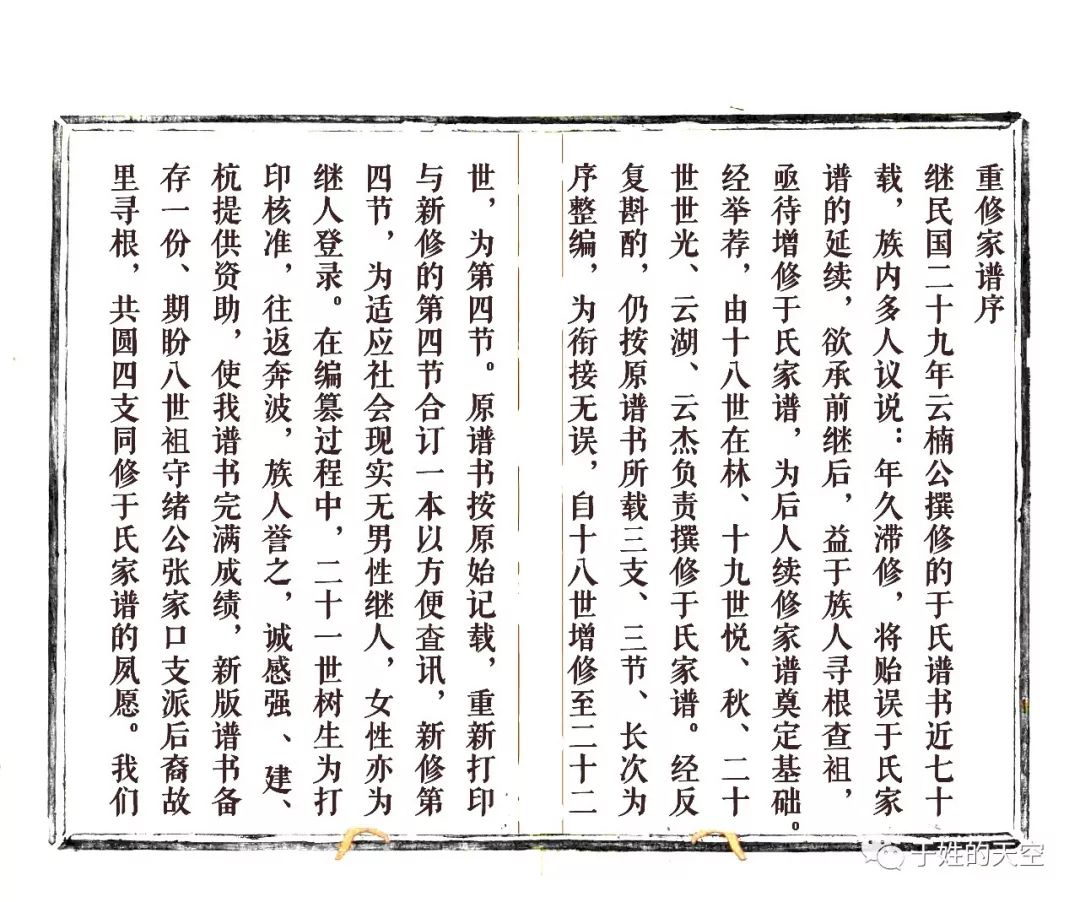 重修家谱序
继民国二十九年云楠公撰修的于氏谱书近七十
载，族内多人议说：年久滞修，将贻误于氏家
谱的延续，欲承前继后，益于族人寻根查祖，
亟待增修于氏家谱，为后人续修家谱奠定基础。
经举荐，由十八世在林、十九世悦、秋、二十
世世光、云湖、云杰负责撰修于氏家谱。经反
复斟酌，仍按原谱书所载三支、三节、长次为
序整编，为衔接无误，自十八世增修至二十二
世，为第四节。原谱书按原始记载，重新打印
与新修的第四节合订一本以方便查讯，新修第
四节，为适应社会现实无男性继人，女性亦为
继人登录。在编篡过程中，二十一世树生为打
印核准，往返奔波，族人誉之，诚感强、建、
杭提供资助，使我谱书完满成绩，新版谱书备
存一份、期盼八世祖守绪公张家口支派后裔故
里寻根，共圆四支同修于氏家谱的夙愿。我们
于姓的天空